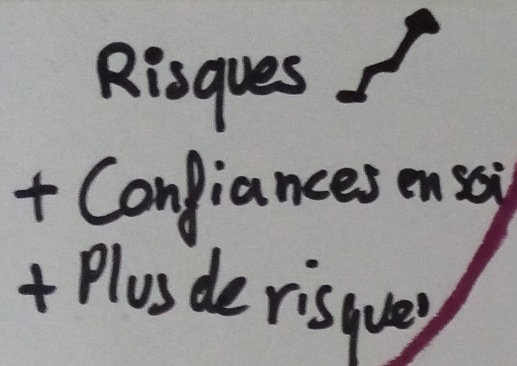 Risques
+ Confiances en soi
+ Plus de risques